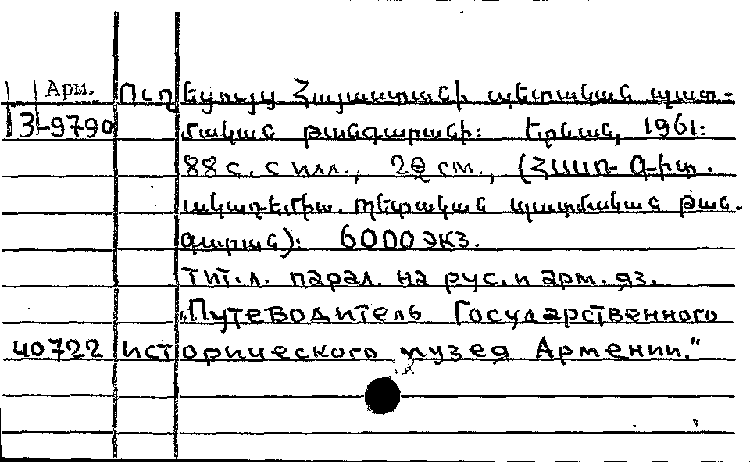 Арм. Ուղեցույց Հայաստանի պետական պատ-
13-9790 մական թանգարանի: Երևան, 1961:
88 с. с илл., 20 см., (ՀՍՍՌ Գիտ.
ակադեմիա. Պետական պատմական թան.
գարան): 6000 экз.
Тит. л. парал. на рус. и арм. яз.
„Путеводитель Государственного
40722 исторического музея Армении."